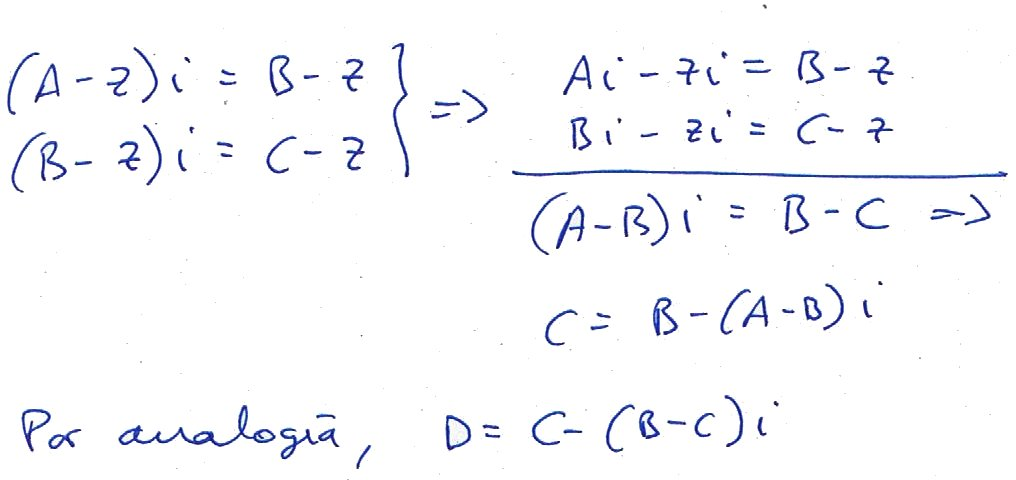 (A-z)i = B-z } => Ai - zi = B-z
(B-z)i = C-z Bi - zi = C-z
(A-B)i = B-C =>
C = B-(A-B)i
Por analogia, D = C-(B-C)i